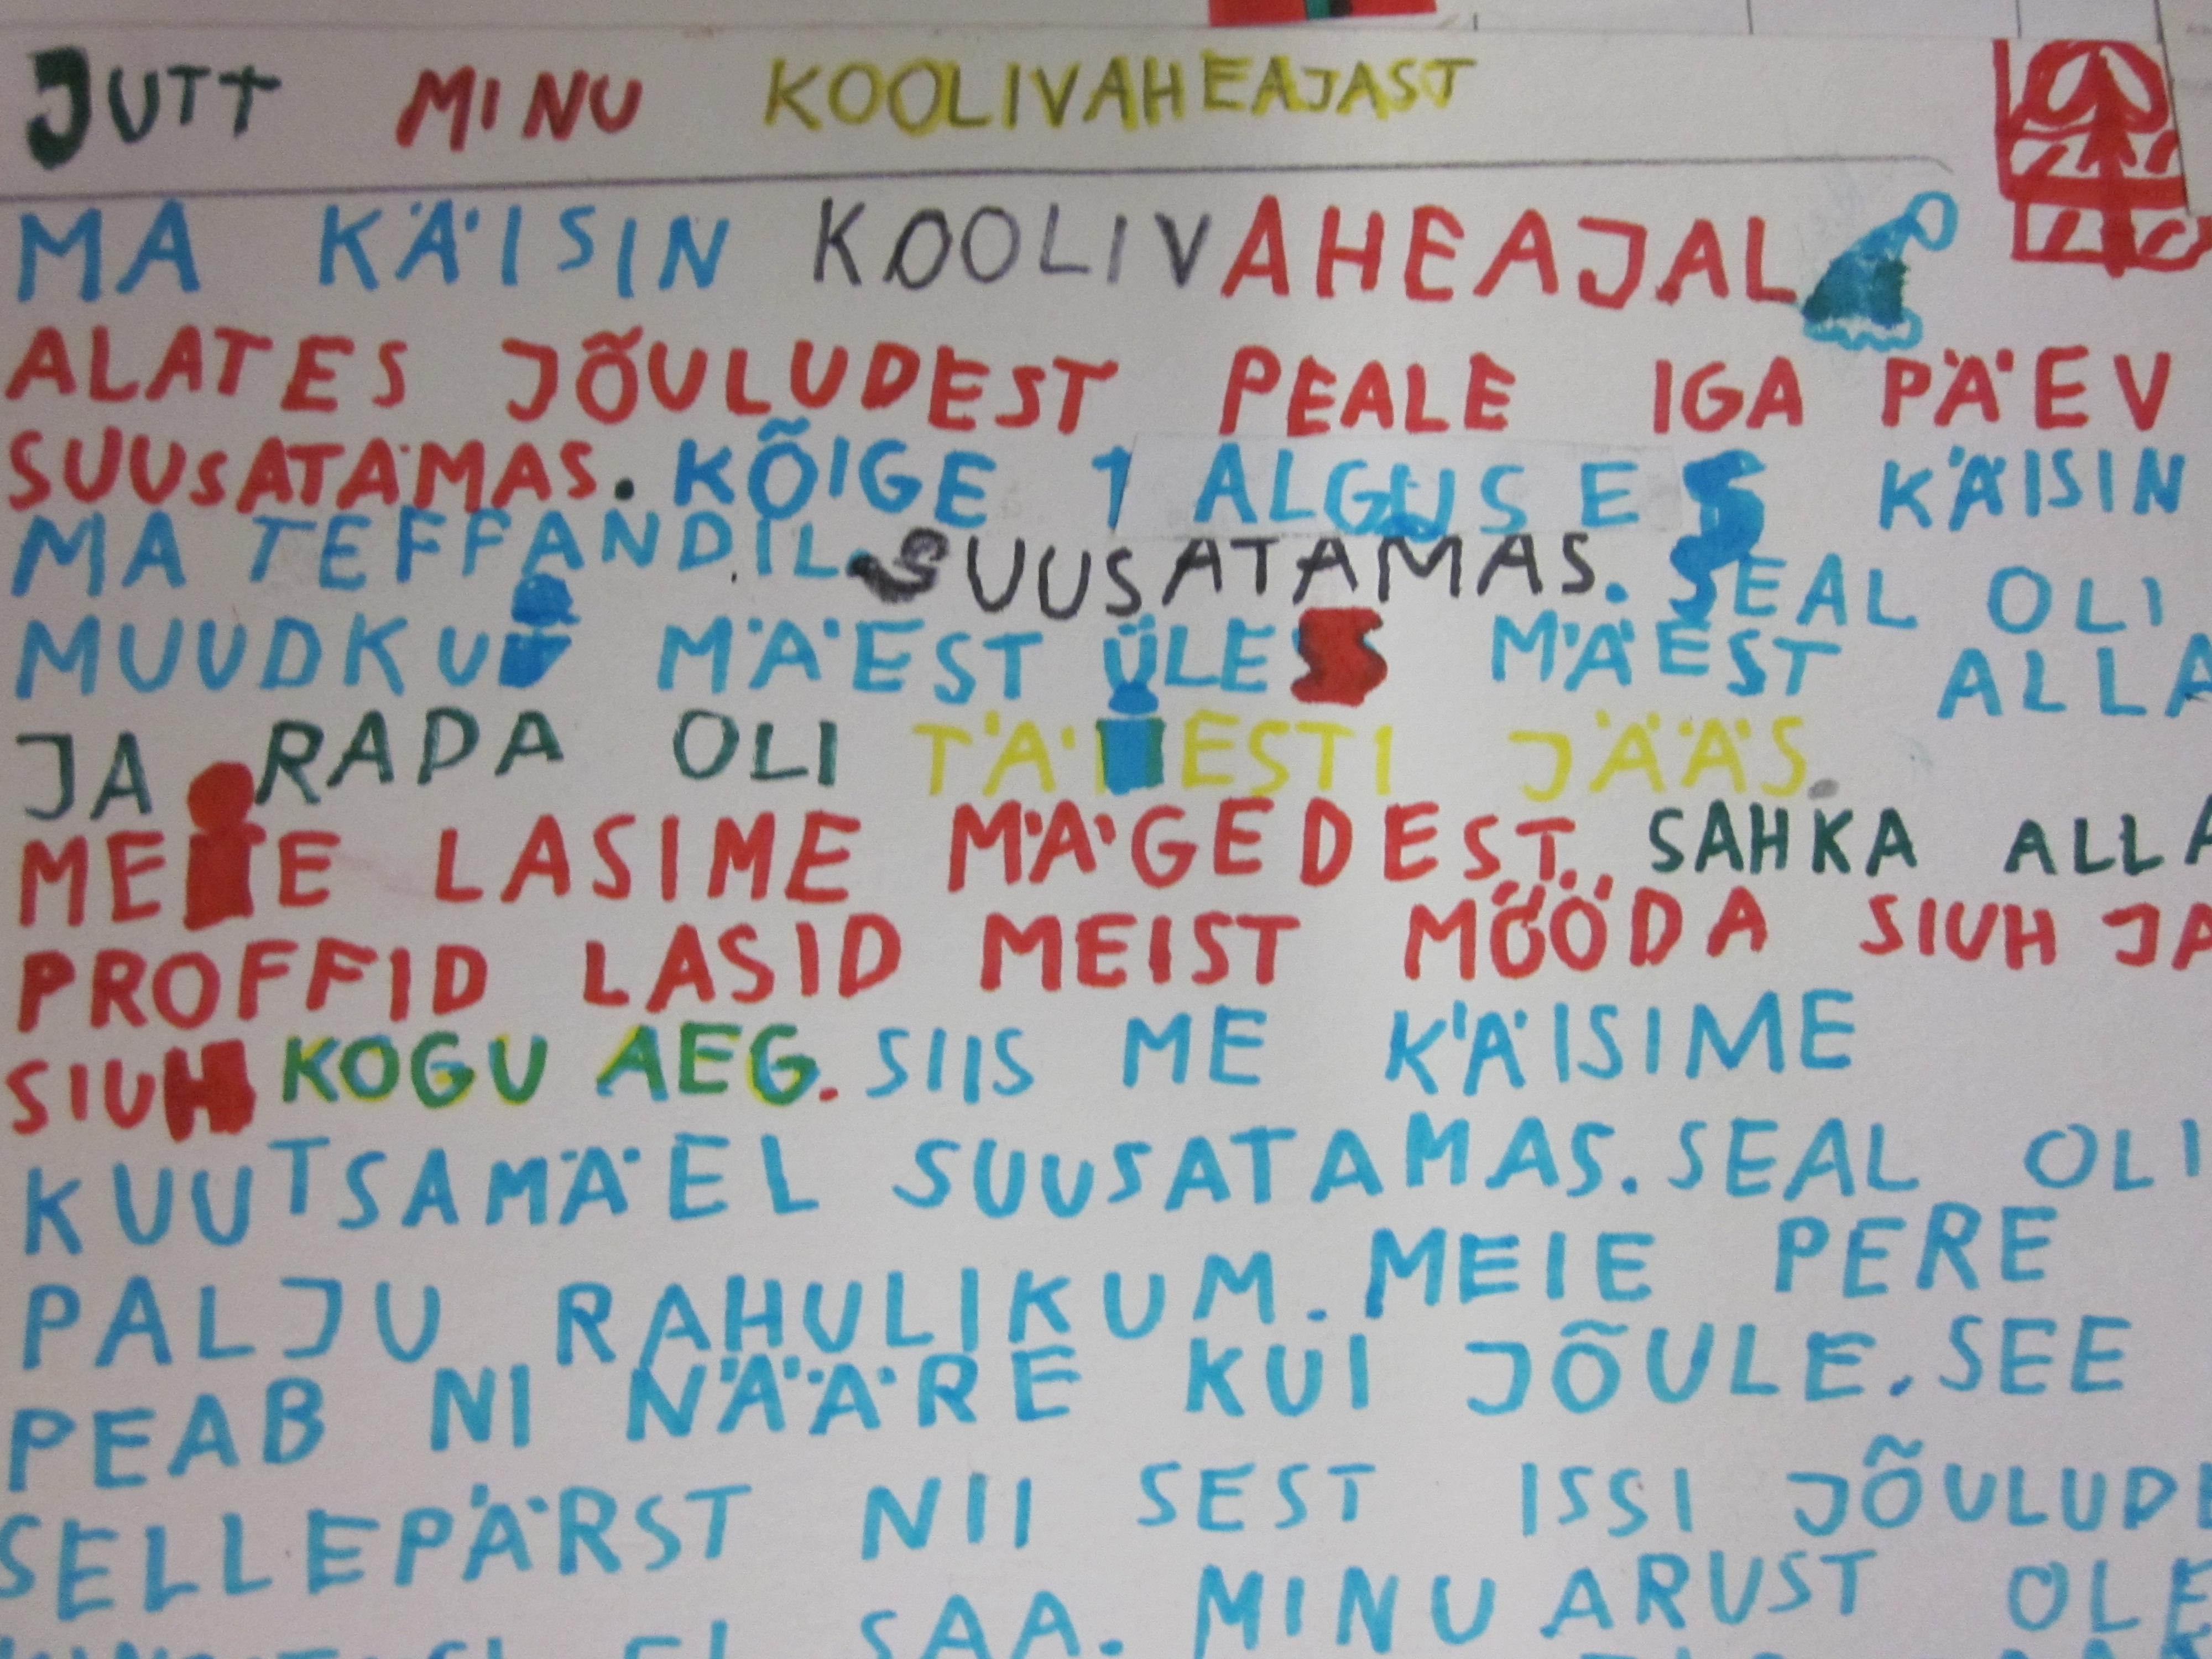 JUTT MINU KOOLIVAHEAJAST
MA KÄISIN KOOLIVAHEAJAL
ALATES JÕULUDEST PEALE IGA PÄEV
SUUSATAMAS. KÕIGE 1 ALGUSES KÄISIN
MA TEFFANDIL SUUSATAMAS. SEAL OLI
MUUDKUI MÄEST ÜLES MÄEST ALLA
JA RADA OLI TÄIESTI JÄÄS.
MEIE LASIME MÄGEDEST. SAHKA ALLA
PROFFID LASID MEIST MÖÖDA SIUH JA
SIUH KOGU AEG. SIIS ME KÄISIME
KUUTSAMÄEL SUUSATAMAS. SEAL OLI
PALJU RAHULIKUM. MEIE PERE
PEAB NI NÄÄRE KUI JÕULE. SEE
SELLEPÄRST NII SEST ISSI
SAA. MINU ARUST